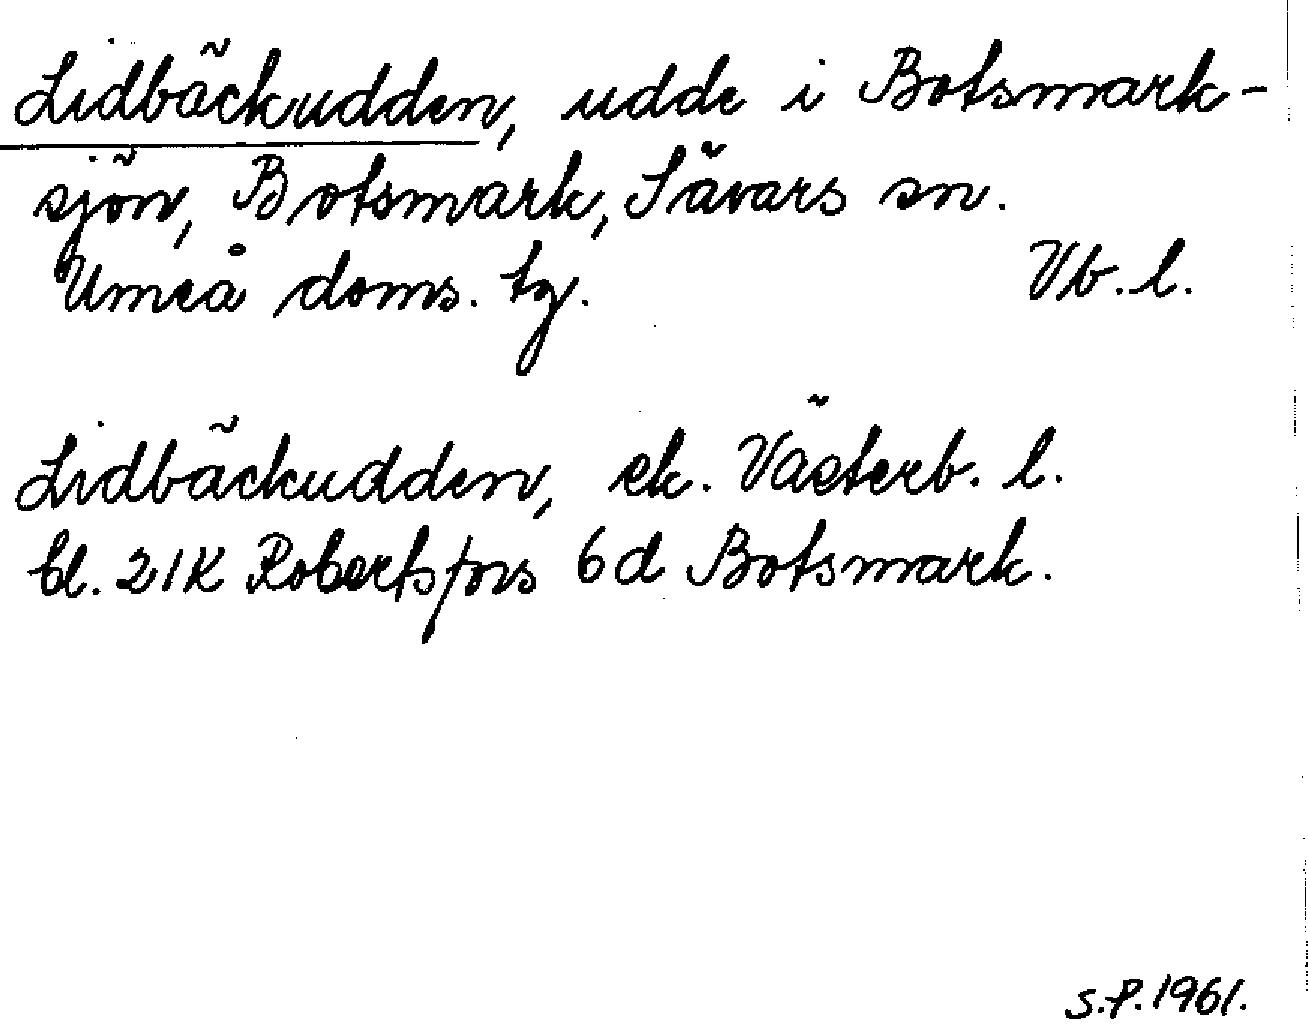 Lidbäckudden, udde i Botsmark-
sjön, Botsmark, Sävars sn.
Umeå doms. tg. Vb. l.
Lidbäckudden, ek. Västerb. l.
bl. 21K Robertsfors 6d Botsmark.
S.P. 1961.